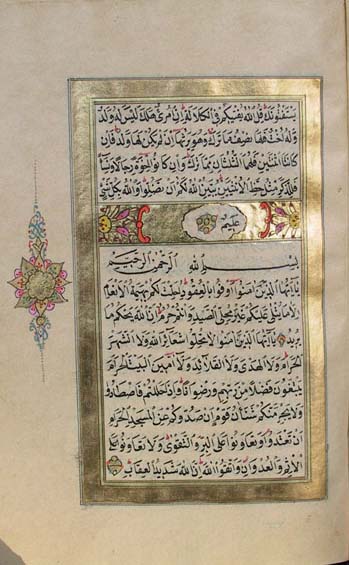 يَسْتَفْتُونَكَ قُلِ اللهُ يُفْتِيكُمْ فِي الْكَلَالَةِ اِنِ امْرُؤٌ هَلَكَ لَيْسَ لَهُ وَلَدٌ
وَلَهُ اُخْتٌ فَلَهَا نِصْفُ مَا تَرَكَ وَهُوَ يَرِثُهَا اِنْ لَمْ يَكُنْ لَهَا وَلَدٌ فَاِنْ
كَانَتَا اثْنَتَيْنِ فَلَهُمَا الثُّلُثَانِ مِمَّا تَرَكَ وَاِنْ كَانُوا اِخْوَةً رِجَالًا وَنِسَاءً
فَلِلذَّكَرِ مِثْلُ حَظِّ الْاُنْثَيَيْنِ يُبَيِّنُ اللهُ لَكُمْ اَنْ تَضِلُّوا وَاللهُ بِكُلِّ شَيْءٍ
عَلِيمٌ
بِسْمِ اللهِ الرَّحْمٰنِ الرَّحِيمِ
يَا اَيُّهَا الَّذِينَ اٰمَنُوا اَوْفُوا بِالْعُقُودِ اُحِلَّتْ لَكُمْ بَهِيمَةُ الْاَنْعَامِ
اِلَّا مَا يُتْلٰى عَلَيْكُمْ غَيْرَ مُحِلِّي الصَّيْدِ وَاَنْتُمْ حُرُمٌ اِنَّ اللهَ يَحْكُمُ مَا
يُرِيدُ يَا اَيُّهَا الَّذِينَ اٰمَنُوا لَا تُحِلُّوا شَعَائِرَ اللهِ وَلَا الشَّهْرَ
الْحَرَامَ وَلَا الْهَدْيَ وَلَا الْقَلَائِدَ وَلَا اٰمِّينَ الْبَيْتَ الْحَرَامَ
يَبْتَغُونَ فَضْلًا مِنْ رَبِّهِمْ وَرِضْوَانًا وَاِذَا حَلَلْتُمْ فَاصْطَادُوا
وَلَا يَجْرِمَنَّكُمْ شَنَاٰنُ قَوْمٍ اَنْ صَدُّوكُمْ عَنِ الْمَسْجِدِ الْحَرَامِ
اَنْ تَعْتَدُوا وَتَعَاوَنُوا عَلَى الْبِرِّ وَالتَّقْوٰى وَلَا تَعَاوَنُوا عَلَى
الْاِثْمِ وَالْعُدْوَانِ وَاتَّقُوا اللهَ اِنَّ اللهَ شَدِيدُ الْعِقَابِ